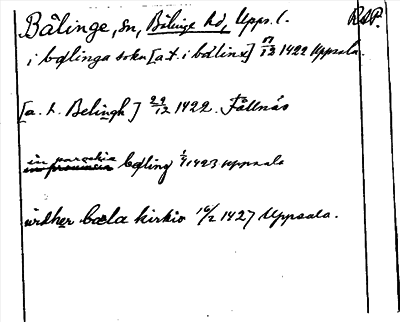 Bälinge, sn, Bälinge hd, Upps. l. RAP.
i bælinga sokn [a.t. i bælinx] 17/12 1422 Uppsala.
[a. t. Belingh] 29/12 1422. Fållnäs
in parochia
in provincia bæling 1/4 1423 Uppsala
widher bæla kirkio 16/2 1427 Uppsala.